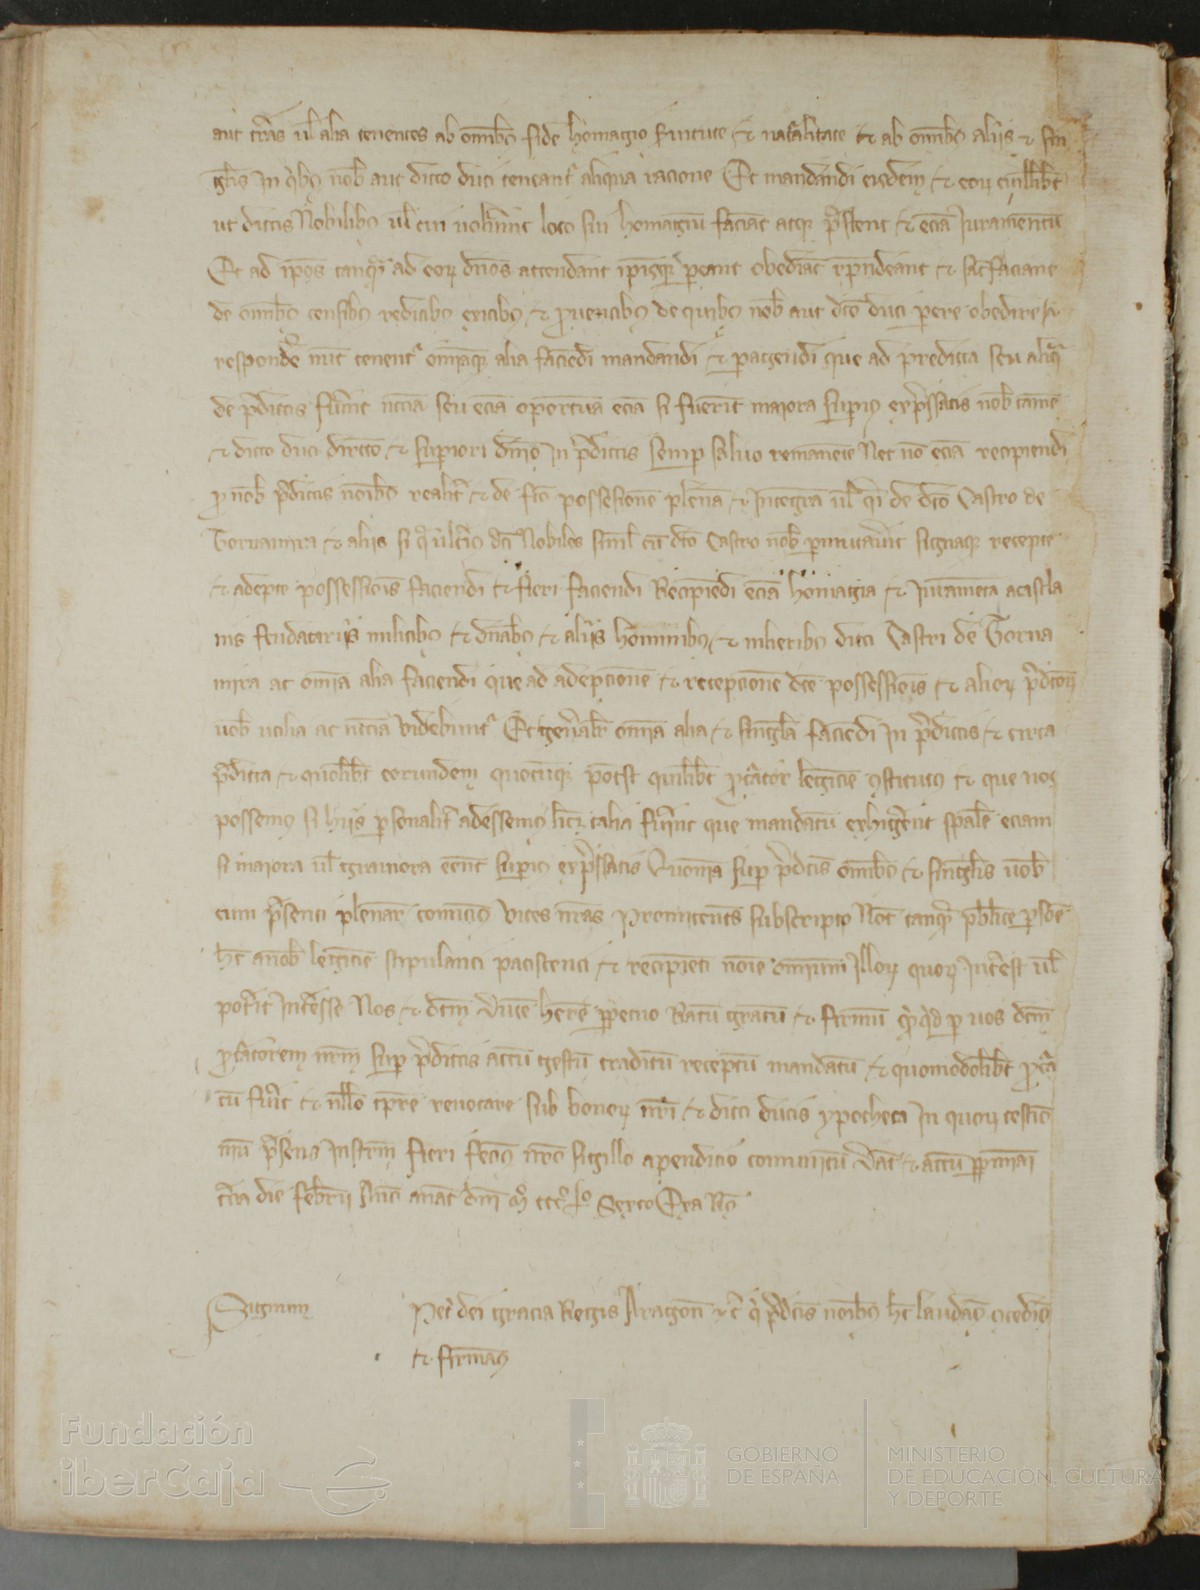 aut terras vel alia tenentes ab omnibus fide homagio et naturalitate et ab omnibus aliis et sin
gulis in quibus nobis aut dicto duci teneantur aliqua racione Et mandandi eisdem et eorum cuilibet
ut dictis Nobilibus vel cui voluerint loco sui homagium faciant atque prestent et eciam Juramentum
Et ad ipsos tanquam ad eorum dominos attendant ipsisque pareant obediant respondeant et satisfaciant
de omnibus censibus redditibus exitibus et proventibus de quibus nobis aut dicto duci parere obedire et
respondere nunc tenentur omniaque alia faciendi mandandi et peragendi que ad predicta seu aliqua
de predictis fuerint necessaria seu eciam oportuna eciam si fuerint maiora superius expressatis nobis tamen
et dicto duci directo et superiori dominio in predictis semper salvo remanente Nec non eciam recipiendi
pro nobis predictis nominibus realiter et de facto possessionem plenam et integram vel quasi de dicto Castro de
Torvamira et aliis si que dicti Nobiles simul cum dicto Castro nobis permutaverint signaque recepte
et adepte possessionis faciendi et fieri faciendi Recipiendi eciam homagia et iuramenta a castla
nis feudatariis militibus et dominabus et aliis hominibus et mulieribus dicti Castri de Torva
mira ac omnia alia faciendi que ad adepcionem et recepcionem dicte possessionis et aliorum predictorum
vobis utilia ac necessaria videbuntur Et generaliter omnia alia et singula faciendi in predictis et circa
predicta et quodlibet eorundem quecumque potest quilibet procurator legitime constitutus et que nos
possemus si hiis personaliter adessemus licet talia fuerint que mandatum exhigerent speciale eciam
si maiora vel graviora essent superius expressatis Quoniam super predictis omnibus et singulis vobis
cum presenti plenarie comittimus vices nostras Promittentes subscripto Notario tanquam publice persone
hec a nobis legitime stipulanti paciscenti et recipienti nomine omnium illorum quorum interest vel
poterit interesse Nos et dictum ducem habere perpetuo Ratum gratum et firmum quicquid per vos dictum
procuratorem nostrum super predictis actum gestum traditum receptum mandatum et quomodolibet procura
tum fuerit et nullo tempore revocare sub bonorum nostri et dicti ducis ypotheca In quorum testimo
nium presens Instrumentum fieri fecimus nostro sigillo apendicio comunitum Datum et actum Perpiniani
tercia die Februarii Anno a nativitate domini Mº CCCº Lº Sexto Era Nos
Signum
Petri dei gracia Regis Aragonum etc qui predictis nominibus hec laudamus concedimus
et firmamus
Fundación
iberCaja
GOBIERNO
DE ESPAÑA
MINISTERIO
DE EDUCACIÓN, CULTURA
Y DEPORTE